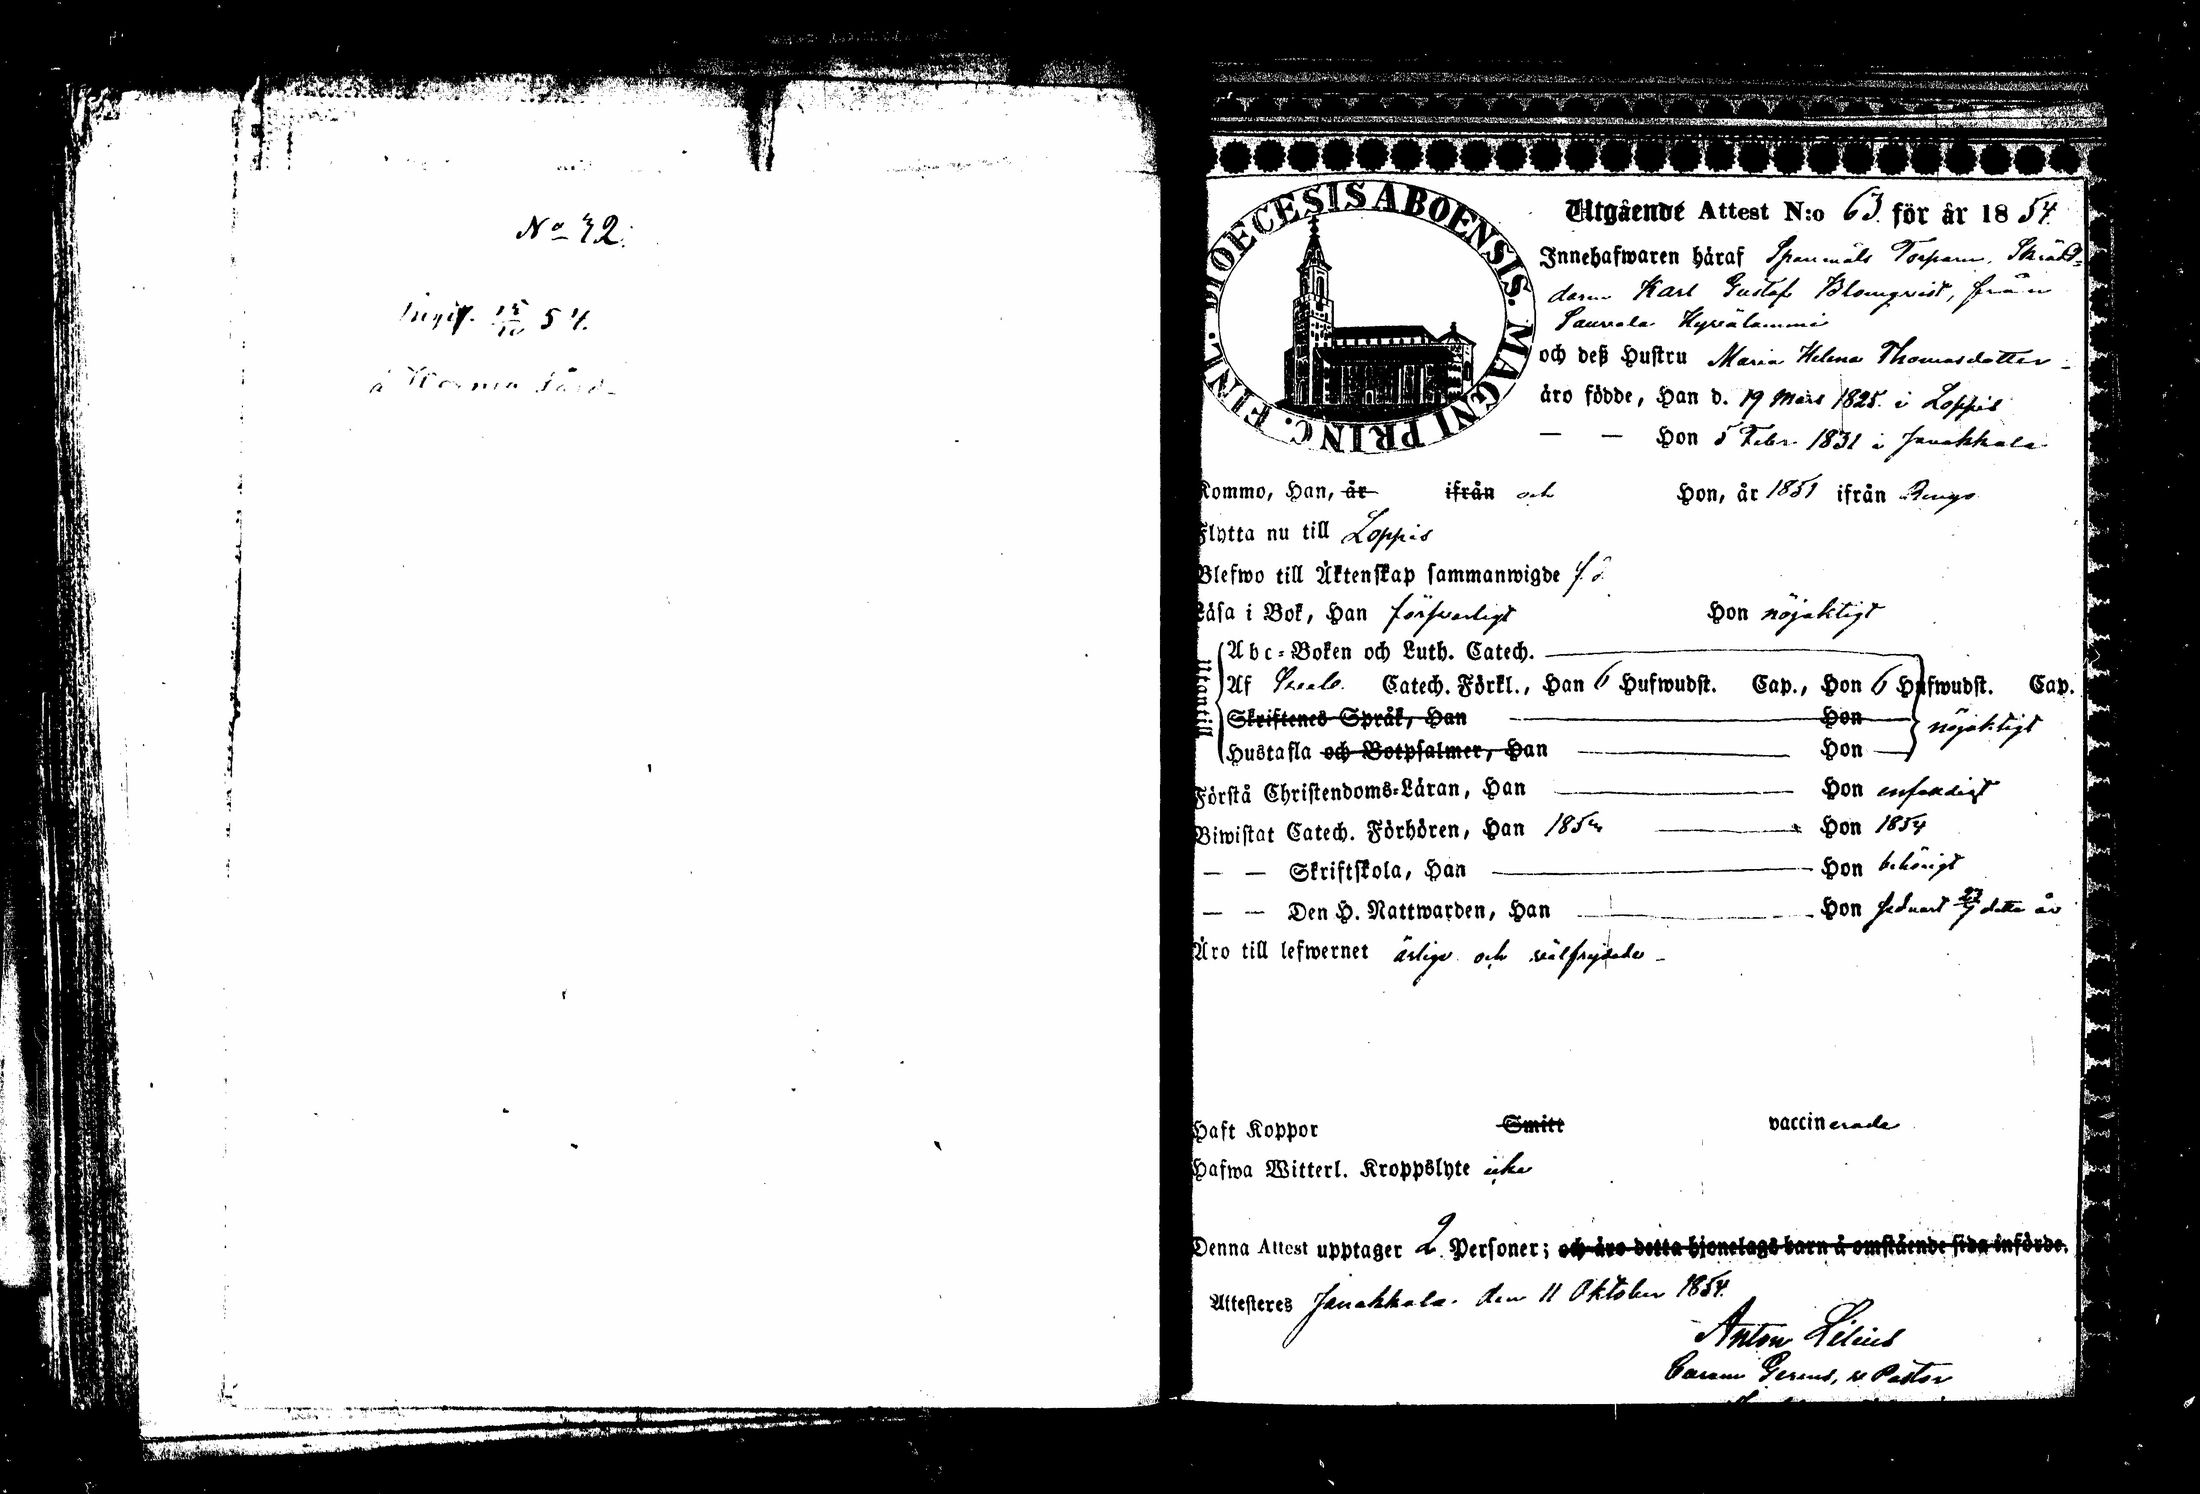 No 42.
Ingif. 15/10 54.
DIOECESIS ABOENSIS. MAGNI PRINC. FINL.
Utgående Attest N:o 63 för år 1854
Innehafwaren häraf Torparn, Skräd-
daren Karl Gustaf Blomqvist, från
och deß Hustru Maria Helena Thomasdotter
äro födde, Han d. 19 Mars 1825 i Loppis
— — Hon 5 Febr 1831 i Janakkala
Kommo, Han, år ifrån och Hon, år 1851 ifrån
Flytta nu till Loppis
Blefwo till Äktenskap sammanwigde
Läsa i Bok, Han försvarligt Hon nöjaktigt
Utantill
Abc-Boken och Luth. Catech.
Af Catech. Förkl., Han 6 Hufwudst. Cap., Hon 6 Hufwudst. Cap.
Skriftenes Språk, Han Hon
nöjaktigt
Hustafla och Botpsalmer, Han Hon
Förstå Christendoms-Läran, Han Hon enfaldigt
Biwistat Catech. Förhören, Han 1854 Hon 1854
— — Skriftskola, Han Hon behörigt
— — Den H. Nattwarden, Han Hon sednast 23/7 detta år
Äro till lefwernet ärlige och välfrejdade
Haft Koppor Smitt vaccinerade
Hafwa Witterl. Kroppslyte icke
Denna Attest upptager 2 Personer; och äro detta hjonelags barn å omstående sida införde.
Attesteres Janakkala den 11 Oktober 1854.
Anton Lilius
Curam Gerens, v Pastor